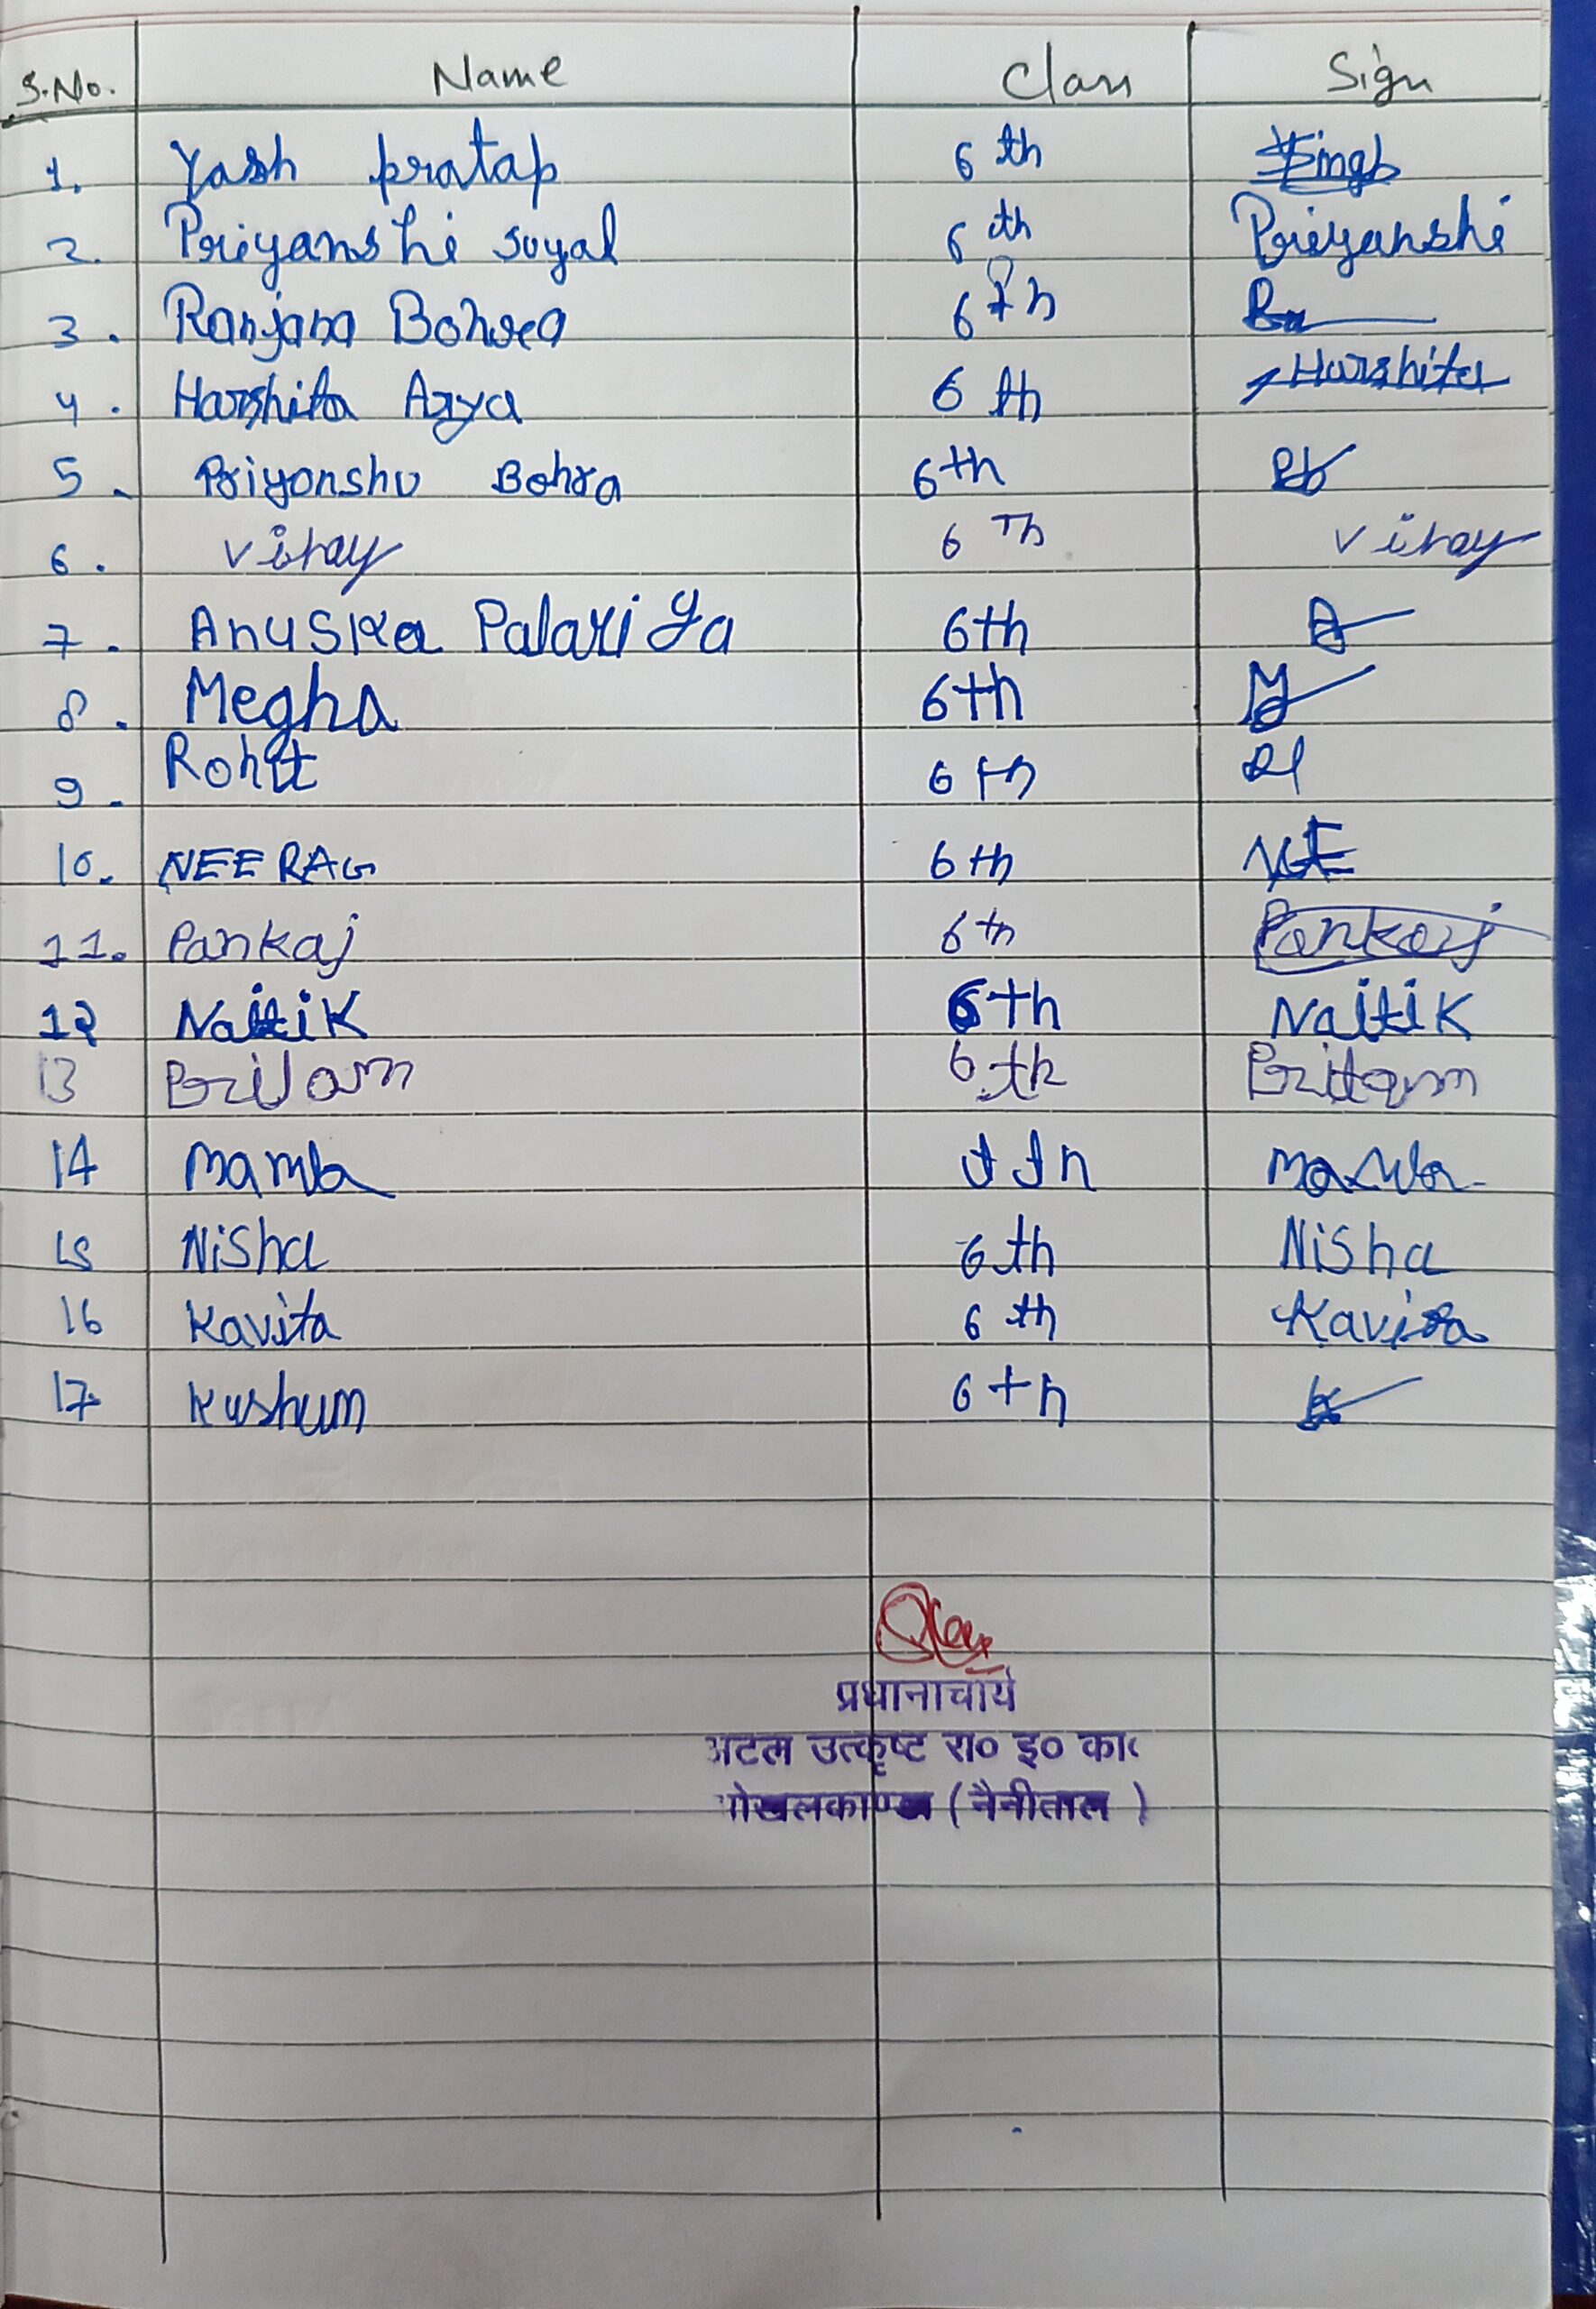 S.No. Name Class Sign
1. Yash pratap 6 th
2. Priyanshi suyal 6 th Priyanshi
3. Ranjana Bohra 6 th
4. Harshita Arya 6 th Harshita
5. Priyonshu Bohra 6th
6. Vinay 6 Th Vinay
7. Anuska Palariya 6th
8. Megha 6th
9. Rohit 6th
10. NEERAG 6th
11. Pankaj 6th Pankaj
12 Naitik 6th Naitik
13 Pritam 6th Pritam
14 Mamta Mamta
15 Nisha 6th Nisha
16 Kavita 6th Kavita
17. Kushum 6th
प्रधानाचार्य
अटल उत्कृष्ट रा० इ० का०
(नैनीताल)